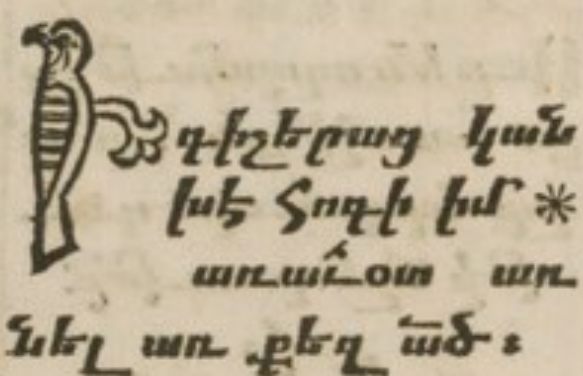 Ի գիշերաց կան
խէ հոգի իմ *
առաւօտ առ
նել առ քեզ ած։